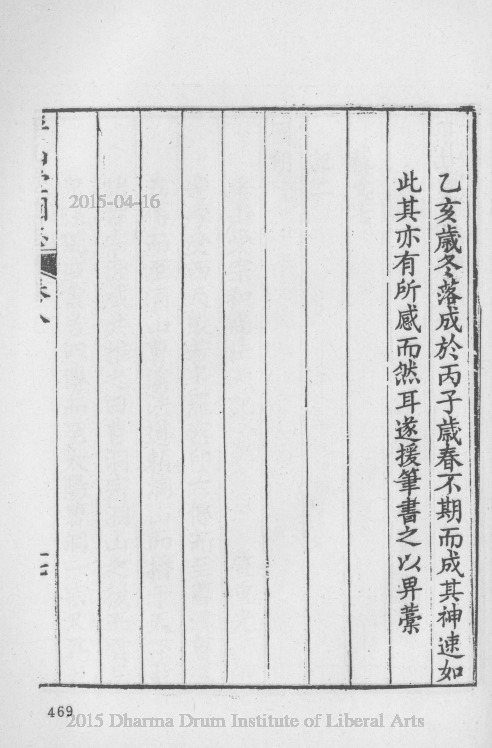 乙亥歲冬落成於丙子歲春不期而成其神速如
此其亦有所感而然耳遂援筆書之以畀藁
卷八
2015-04-16
469
2015 Dharma Drum Institute of Liberal Arts